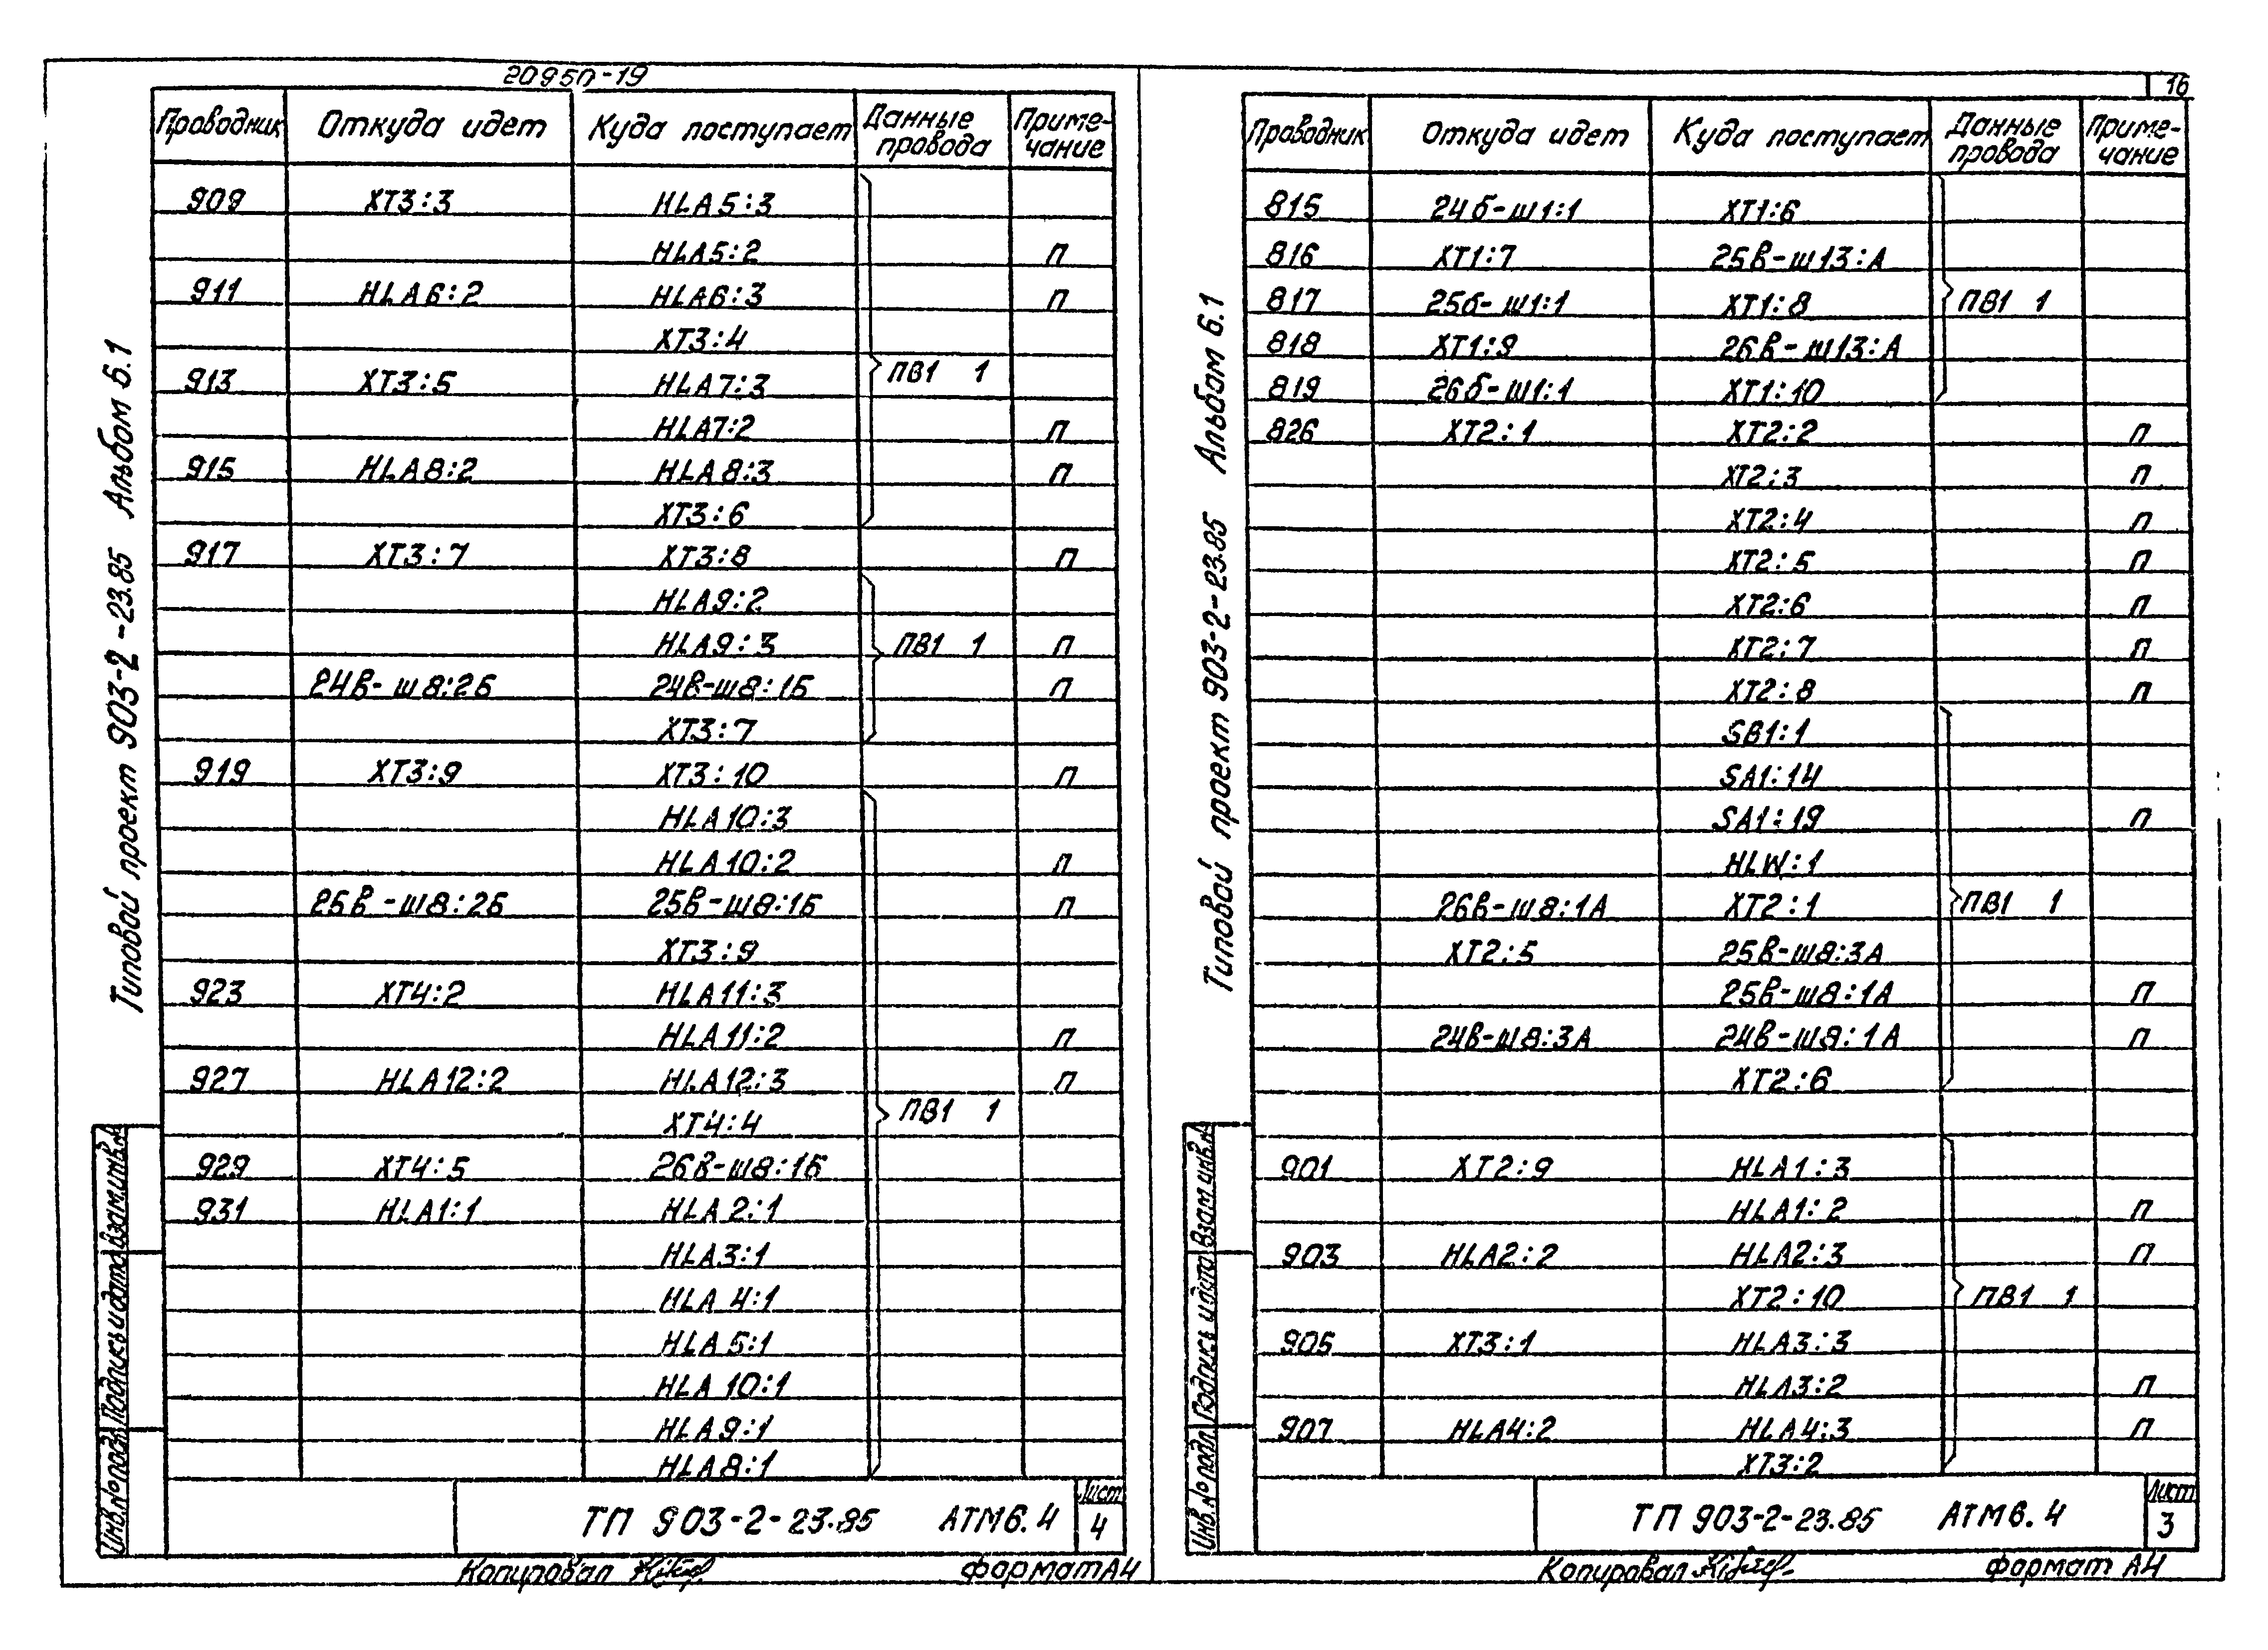 20950-19
Проводник Откуда идет Куда поступает Данные провода Приме-чание
909 XT3:3 HLA5:3
HLA5:2 П
911 HLA6:2 HLA6:3 П
XT3:4
ПВ1 1
913 XT3:5 HLA7:3
HLA7:2 П
915 HLA8:2 HLA8:3 П
XT3:6
917 XT3:7 XT3:8 П
HLA9:2
HLA9:3 ПВ1 1 П
24В-Ш8:2Б 24В-Ш8:1Б П
XT3:7
919 XT3:9 XT3:10 П
HLA10:3
HLA10:2 П
25В-Ш8:2Б 25В-Ш8:1Б П
XT3:9
923 XT4:2 HLA11:3
HLA11:2 П
927 HLA12:2 HLA12:3 П
XT4:4 ПВ1 1
929 XT4:5 26В-Ш8:1Б
931 HLA1:1 HLA2:1
HLA3:1
HLA4:1
HLA5:1
HLA10:1
HLA9:1
HLA8:1
ТП 903-2-23.85 АТМ6.4
Лист
4
Копировал
Формат А4
Типовой проект 903-2-23.85 Альбом 6.1
Инв.№подл. Подпись и дата Взам.инв.№
16
Проводник Откуда идет Куда поступает Данные провода Приме-чание
815 24б-Ш1:1 XT1:6
816 XT1:7 25В-Ш13:А
817 25б-Ш1:1 XT1:8 ПВ1 1
818 XT1:9 26В-Ш13:А
819 26б-Ш1:1 XT1:10
826 XT2:1 XT2:2 П
XT2:3 П
XT2:4 П
XT2:5 П
XT2:6 П
XT2:7 П
XT2:8 П
SB1:1
SA1:14
SA1:19 П
HLW:1
26В-Ш8:1А XT2:1 ПВ1 1
XT2:5 25В-Ш8:3А
25В-Ш8:1А П
24В-Ш8:3А 24В-Ш8:1А П
XT2:6
901 XT2:9 HLA1:3
HLA1:2 П
903 HLA2:2 HLA2:3 П
XT2:10 ПВ1 1
905 XT3:1 HLA3:3
HLA3:2 П
907 HLA4:2 HLA4:3 П
XT3:2
ТП 903-2-23.85 АТМ6.4
Лист
3
Копировал
Формат А4
Типовой проект 903-2-23.85 Альбом 6.1
Инв.№подл. Подпись и дата Взам.инв.№